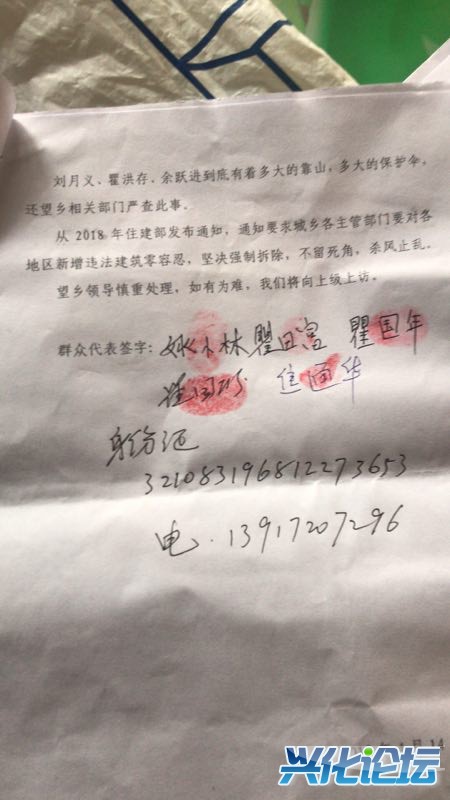 刘月义、瞿洪存、余跃进到底有着多大的靠山，多大的保护伞，
还望乡相关部门严查此事。
从 2018 年住建部发布通知，通知要求城乡各主管部门要对各
地区新增违法建筑零容忍，坚决强制拆除，不留死角，杀风止乱。
望乡领导慎重处理，如有为难，我们将向上级上访。
群众代表签字：姚小林 瞿田富 瞿国年
国华
身份证
321083196812273653
电.13917207296
月 14
兴化论坛